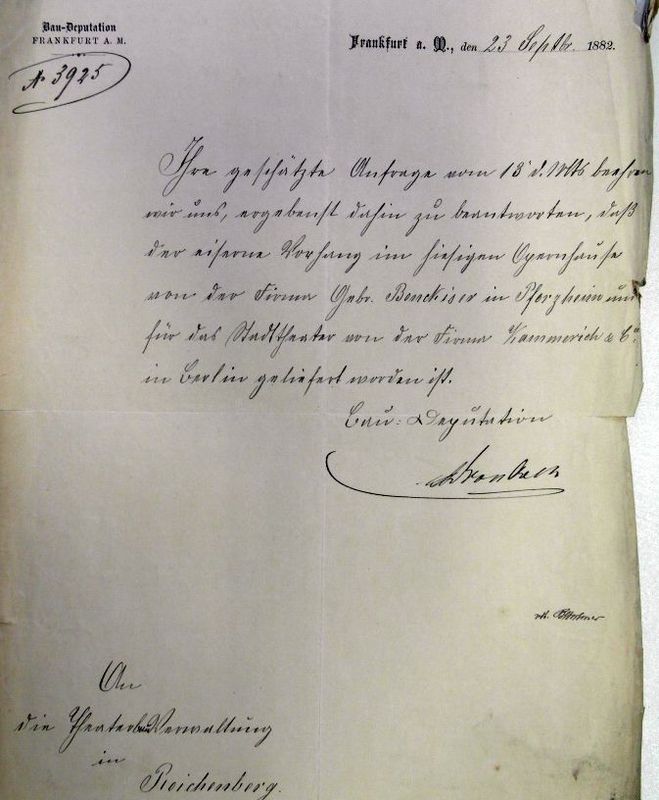 Bau-Deputation
FRANKFURT A. M.
No 3925
Frankfurt a. M., den 23 Septbr. 1882.
Ihre geschätzte Anfrage vom 18 d. Mts beehren
wir uns, ergebenst dahin zu beantworten, daß
der eiserne Vorhang im hiesigen Opernhause
von der Firma Gebr. Benckiser in Pforzheim und
für das Stadttheater von der Firma Kammerich & Co
in Berlin geliefert worden ist.
Bau-Deputation
An
die Theaterbau Verwaltung
in
Reichenberg.